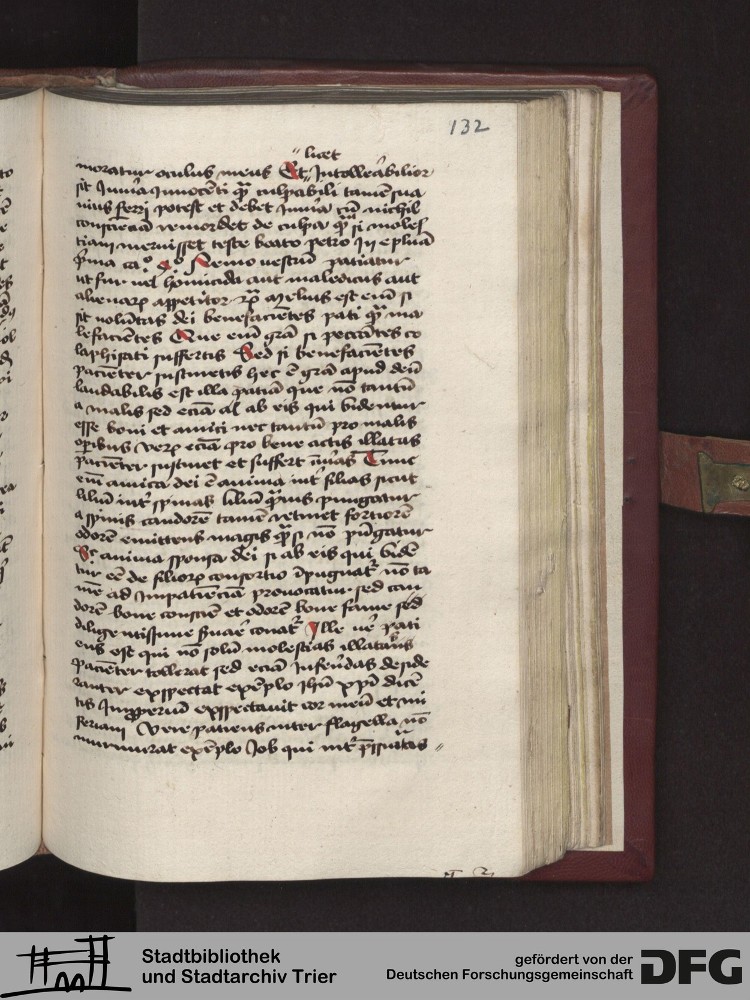 132
licet
moratur oculus meus Et Intollerabilior
sit Iniuria innocenti quam culpabili tamen sua
uius ferri potest et debet iniuria cum nichil
conscienciam remordet de culpa quam si moles
tiam meruisset teste beato petro In epistula
prima ca° 4° Nemo vestrum patiatur
ut fur vel homicida aut maledicus aut
alienarum appetitor Melius est enim si
sit voluntas dei benefacientes pati quam ma
lefacientes Que enim gracia si peccantes co
laphisati suffertis Sed si benefacientes
pacienter sustinetis hec est gracia apud deum
laudabilis est illa paciencia que non tantum
a malis sed eciam ab eis qui videntur
esse boni et amici nec tantum pro malis
operibus verum eciam pro bene actis illatas
pacienter sustinet et suffert iniurias Tunc
enim amica dei est anima inter filias sicut
lilium inter spinas lilium quamvis pungatur
a spinis candorem tamen retinet fortiorem
odorem emittens magis quam si non pungatur
Sic anima sponsa dei si ab eis qui viden
tur esse de filiorum consortio impugnatur non ta
men ad Impacienciam provocatur sed can
dorem bone consciencie et odorem bone fame sed
diligentissime servare conatur Ille vero pati
ens est qui non solum molestias illatas
pacienter tollerat sed eciam inferendas deside
ranter exspectat exemplo ihesu christi dicen
tis Improperium exspectavit cor meum et mi
seriam Vere patiens inter flagella non
murmurat exemplo Iob qui inter pressuras
Stadtbibliothek
und Stadtarchiv Trier
gefördert von der
Deutschen Forschungsgemeinschaft
DFG